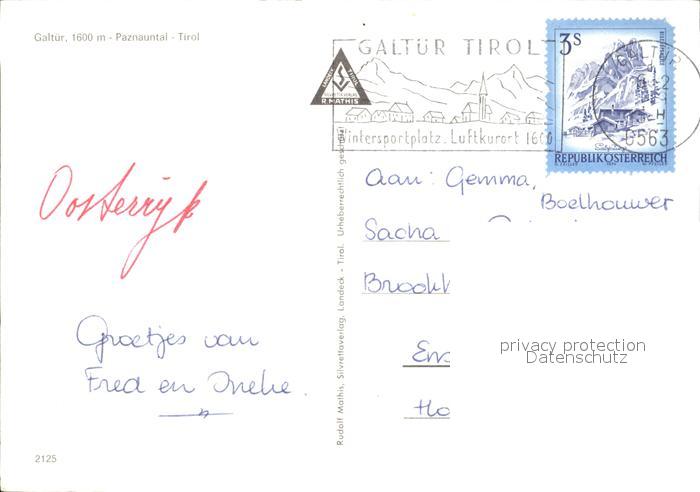 Galtür, 1600 m - Paznauntal - Tirol
GALTÜR TIROL
Wintersportplatz. Luftkurort 1600
R. MATHIS
3S
REPUBLIK ÖSTERREICH
GALTÜR
6563
Oosterryk
Groetjes van
Fred en Ineke.
2125
Rudolf Mathis, Silvrettaverlag, Landeck - Tirol. Urheberrechtlich geschützt
Aan: Gemma,
Boelhouwer
Sacha
privacy protection
Datenschutz